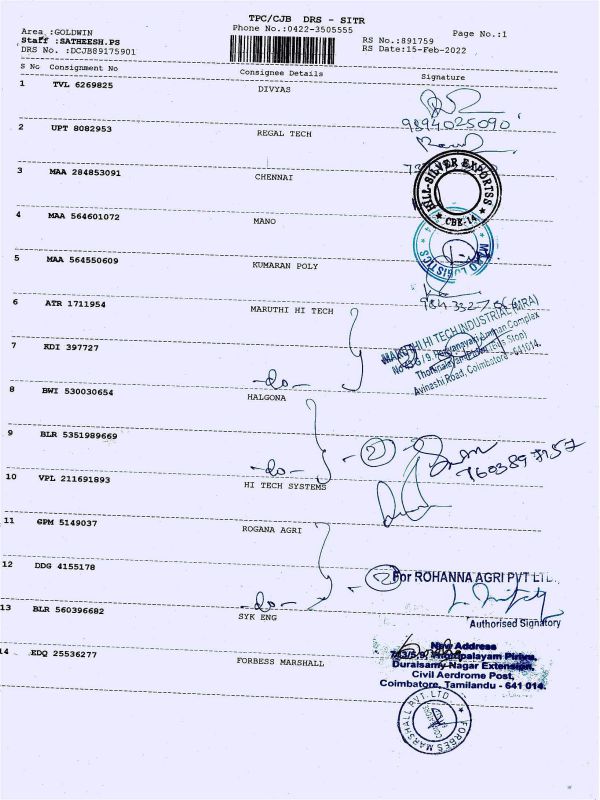 TPC/CJB DRS - SITR
Area :GOLDWIN
Phone No.:0422-3505555
Page No.:1
Staff :SATHEESH.PS
RS No.:891759
DRS No. :DCJB89175901
RS Date:15-Feb-2022
S No Consignment No Consignee Details Signature
1 TVL 6269825 DIVYAS
9894025090
2 UPT 8082953 REGAL TECH
3 MAA 284853091 CHENNAI
HILL-SILVER EXPORTSS
★ CBE-14 ★
4 MAA 564601072 MANO
LOGISTICS
5 MAA 564550609 KUMARAN POLY
6 ATR 1711954 MARUTHI HI TECH
MARUTHI HI TECH INDUSTRIAL (MRA)
Complex
(Bus Stop)
Avinashi Road, Coimbatore - 641014.
7 KDI 397727
-do-
8 BWI 530030654 HALGONA
9 BLR 5351989669
-do- - 2 -
10 VPL 211691893 HI TECH SYSTEMS
11 GPM 5149037 ROGANA AGRI
12 DDG 4155178
-do- - 2
For ROHANNA AGRI PVT LTD.,
Authorised Signatory
13 BLR 560396682 SYK ENG
New Address
Duraisamy Nagar Extension,
Civil Aerdrome Post,
Coimbatore, Tamilandu - 641 014.
14 EDQ 25536277 FORBESS MARSHALL
FORBES MARSHALL PVT. LTD